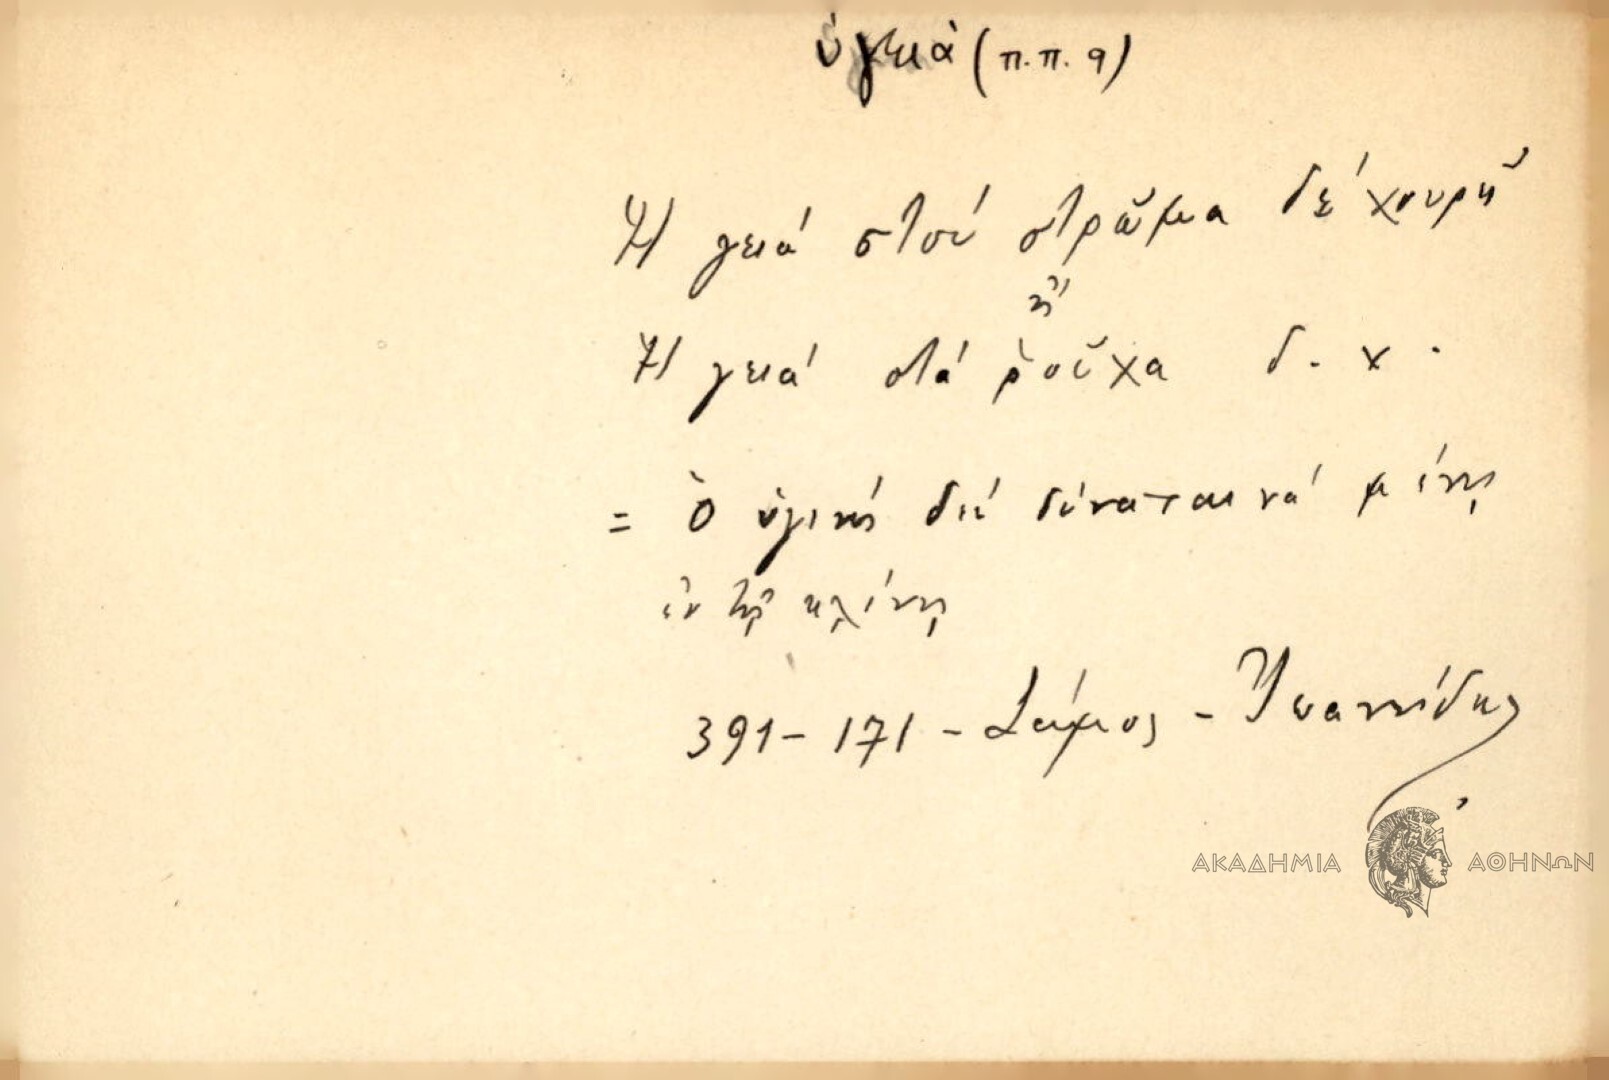 ὑγειά (π.π. 9)
Ἡ γειά στού στρῶμα δέ χουρῆ
ἤ
Ἡ γειά στά ῥοῦχα δ. χ.
= Ὁ ὑγιής δέν δύναται νά μένῃ
ἐν τῇ κλίνῃ
391 - 171 - Σάμος - Ἰωαννίδης
ΑΚΑΔΗΜΙΑ ΑΘΗΝΩΝ